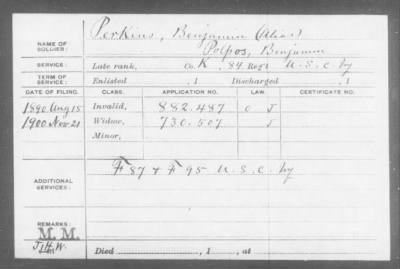 Perkins, Benjamin (Alias)
NAME OF SOLDIER: Polpos, Benjamin
SERVICE: Late rank, Co. K, 84 Regt U.S.C. Inf
TERM OF SERVICE: Enlisted , 1 Discharged , 1
DATE OF FILING. CLASS. APPLICATION NO. LAW. CERTIFICATE NO.
1890 Aug 15 Invalid, 882.487 J
1900 Nov. 21 Widow, 730.507 J
Minor,
ADDITIONAL SERVICES: F 87 & F 95 U.S.C. Inf
REMARKS:
M. M.
J.H.W. Died , 1 , at